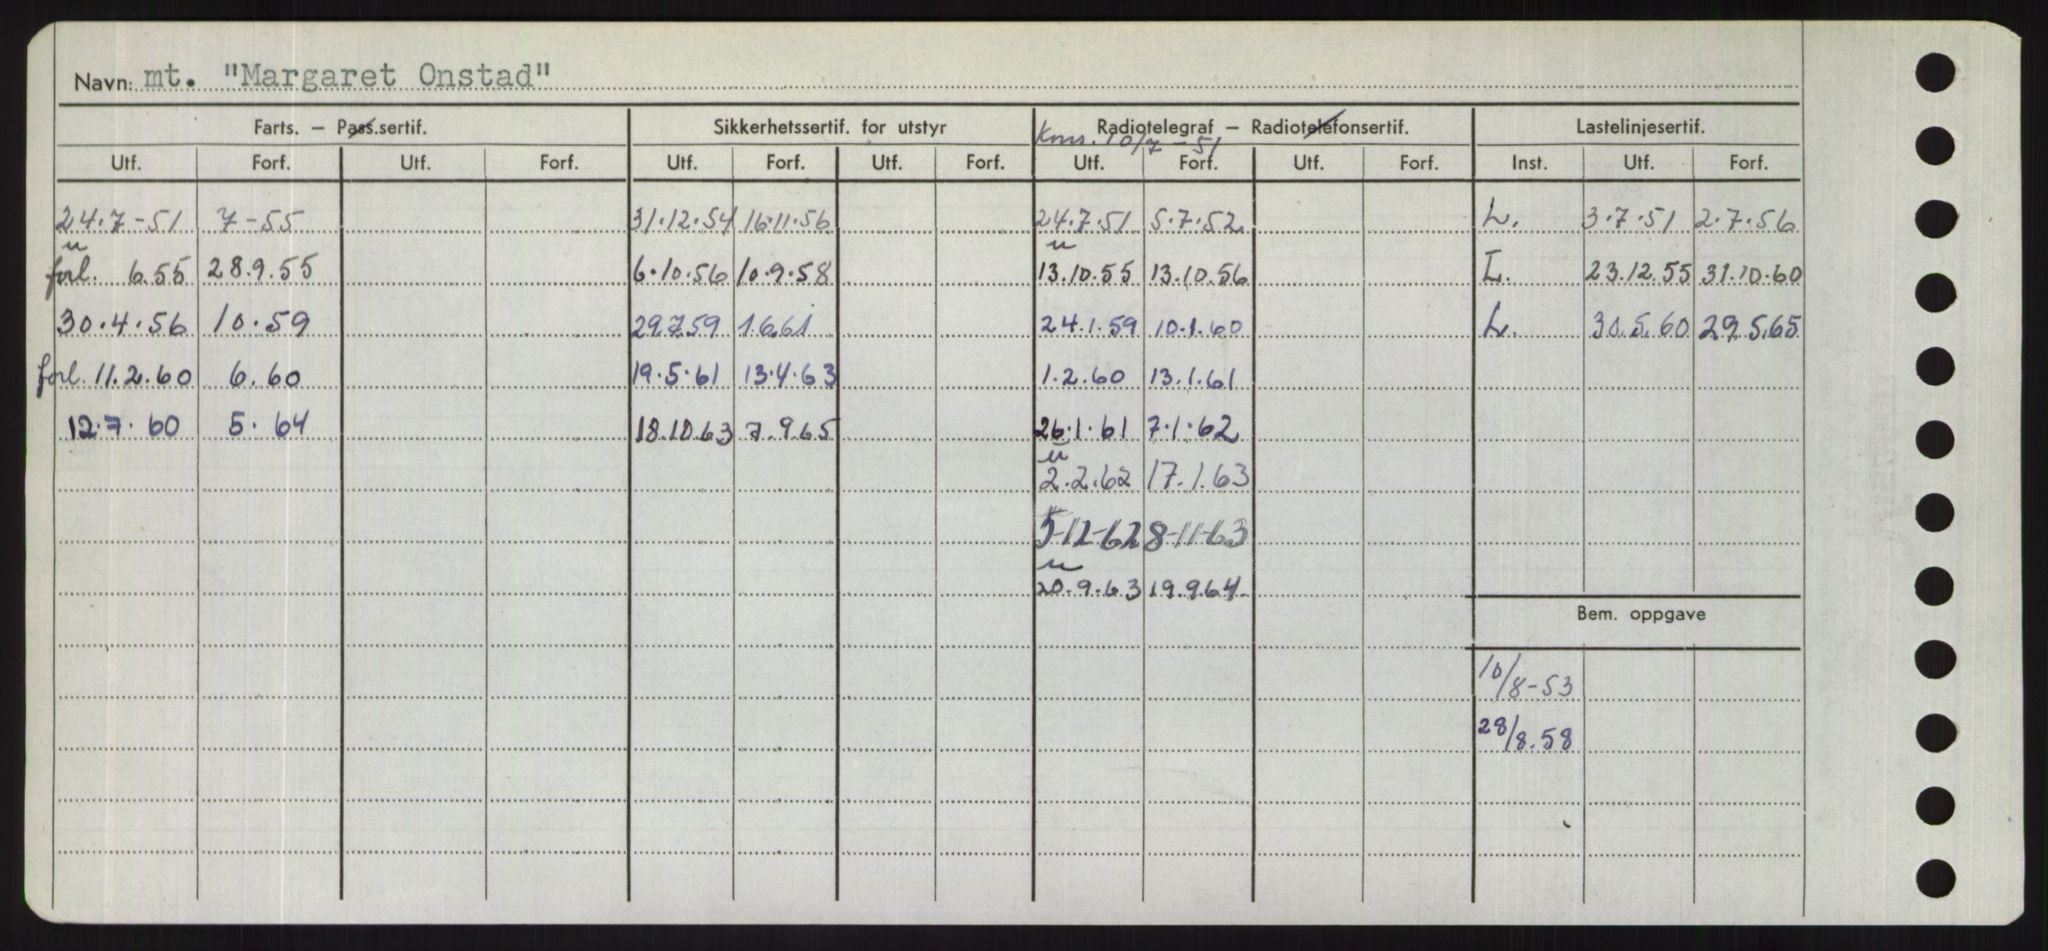 Navn: mt. "Margaret Onstad"
Farts. – Pass.sertif. Sikkerhetssertif. for utstyr Radiotelegraf – Radiotelefonsertif. Lastelinjesertif.
Kons. 10/7-51
Utf. Forf. Utf. Forf. Utf. Forf. Utf. Forf. Utf. Forf. Utf. Forf. Inst. Utf. Forf.
24.7-51 7-55 31.12.54 16.11.56 24.7.51 5.7.52 L. 3.7.51 2.7.56
u u
forl. 6.55 28.9.55 6.10.56 10.9.58 13.10.55 13.10.56 L. 23.12.55 31.10.60
30.4.56 10.59 29.7.59 1.6.61 24.1.59 10.1.60 L. 30.5.60 29.5.65
forl. 11.2.60 6.60 19.5.61 13.4.63 1.2.60 13.1.61
12.7.60 5.64 18.10.63 7.9.65 26.1.61 7.1.62
u
2.2.62 17.1.63
5-12-62 8-11-63
u
20.9.63 19.9.64
Bem. oppgave
10/8-53
28/8.58